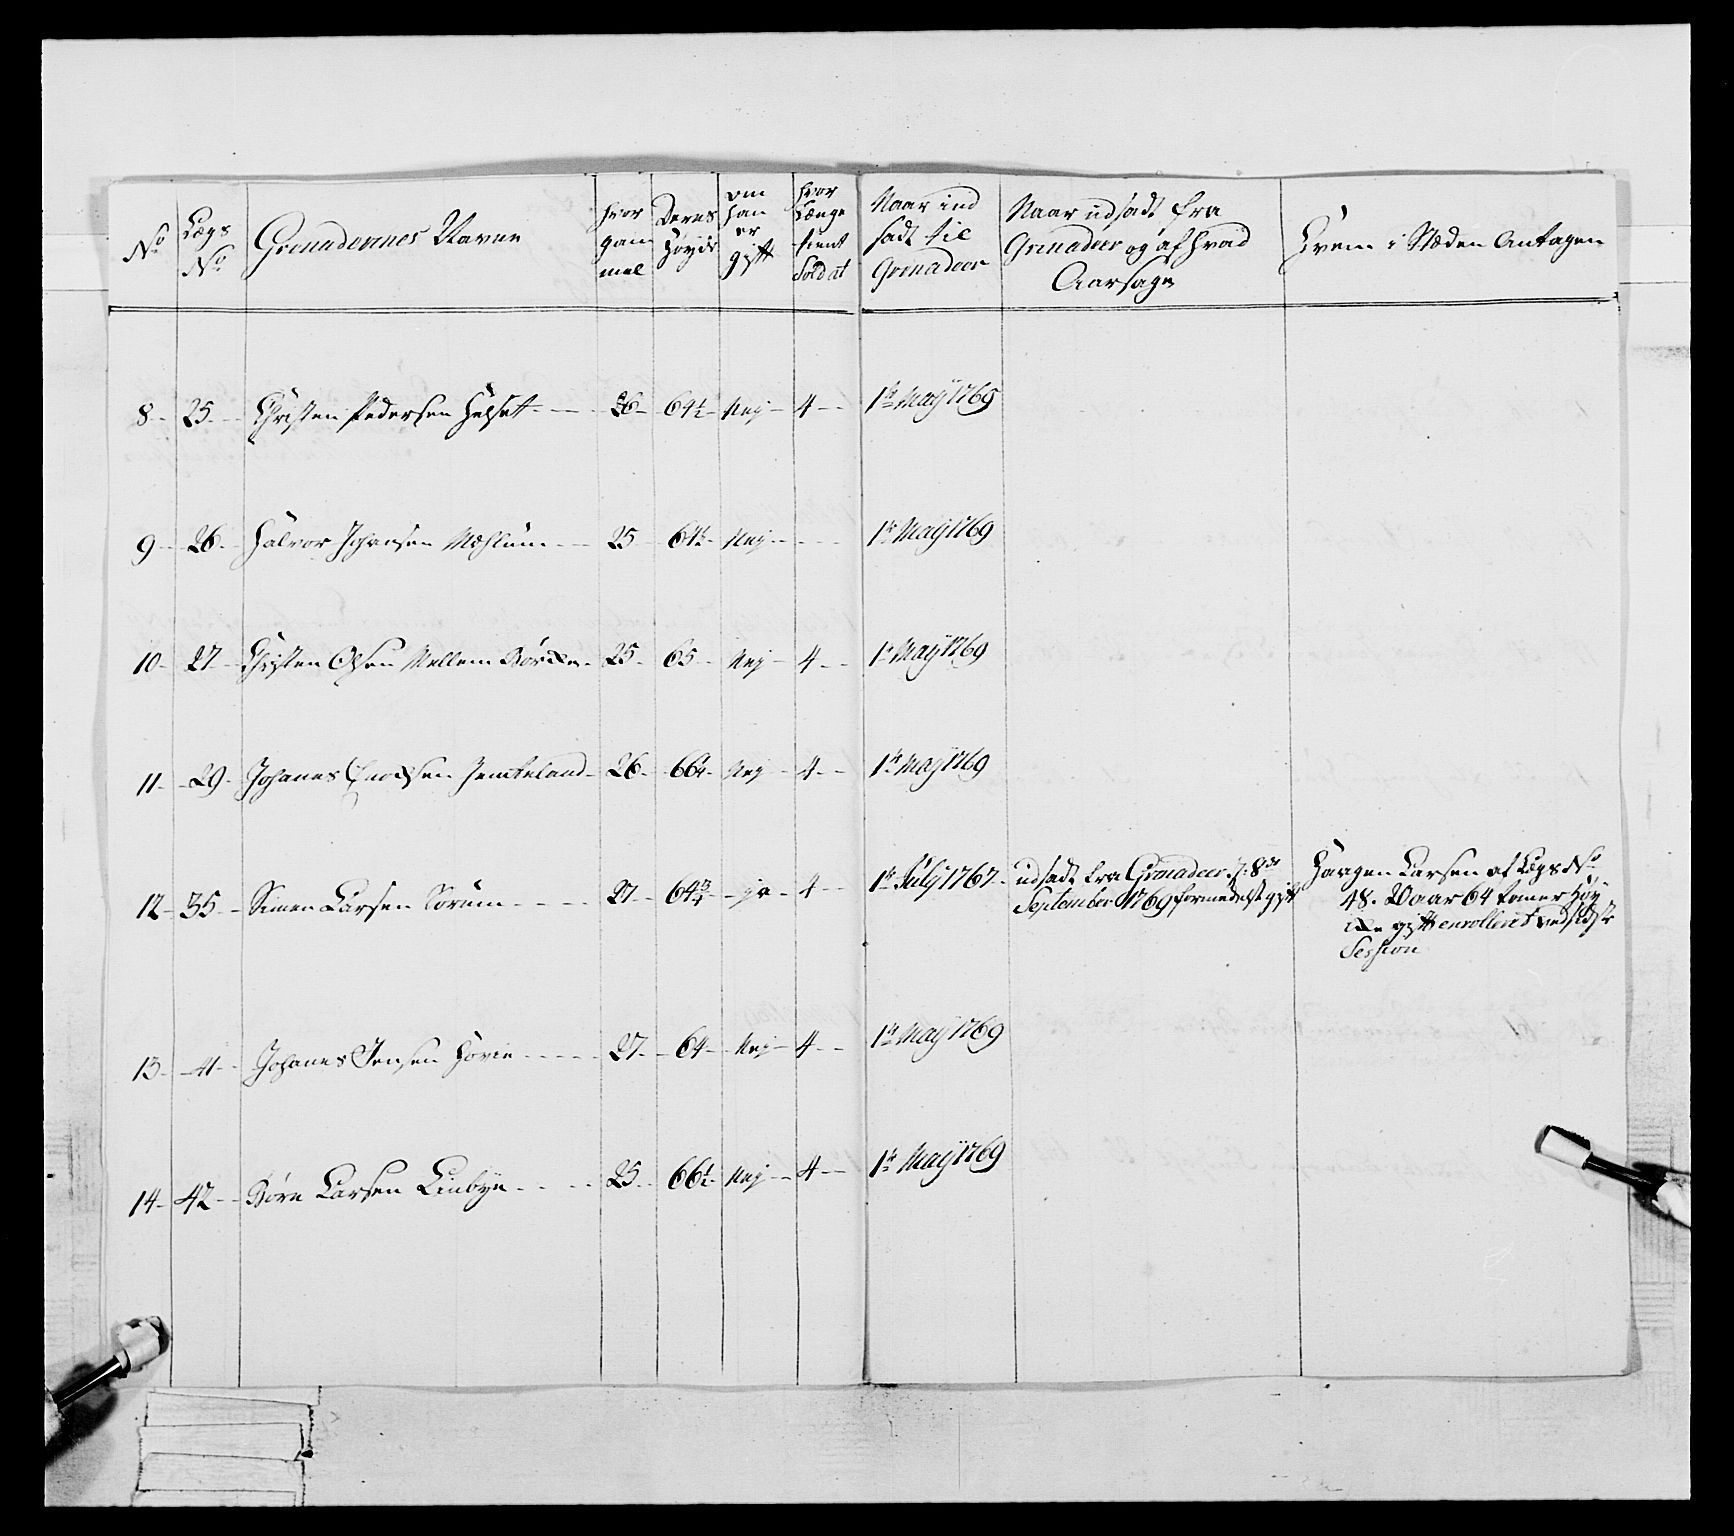 No
Lægs No
Grenaderernes Navne
hvor gam mel
Deres Høyde
om han er gift
hvor længe tient Soldat
Naar ind sadt til Grenadeer
Naar udsadt fra Grenadeer og af hvad Aarsage
Hvem i Stæden Antagen
8 - 25 - Christen Pedersen Helset - 26 - 64½ - Nej - 4 - 1te May 1769
9 - 26 - Halvor Johansen Mæhlum - 25 - 64½ - Nej - - 1te May 1769
10 - 27 - Christen Olsen Mellem - 25 - 65 - Nej - 4 - 1te May 1769
11 - 29 - Johanes Enochsen Jemteland - 26 - 66¼ - Nej - 4 - 1te May 1769
12 - 35 - Simen Larsen Sørum - 27 - 64¾ - ja - 4 - 1te July 1767 - udsadt fra Grenadeer d: 8de
September 1769 formedelst gift
Haagen Larsen af Lægs No
48. 20 aar 64 tomer Høy
gift enrolleret ved sidste
Session
13 - 41 - Johanes Jensen Hovie - 27 - 64 - Nej - 4 - 1te May 1769
14 - 42 - Larsen Linbye - 25 - 66½ - Nej - 4 - 1te May 1769